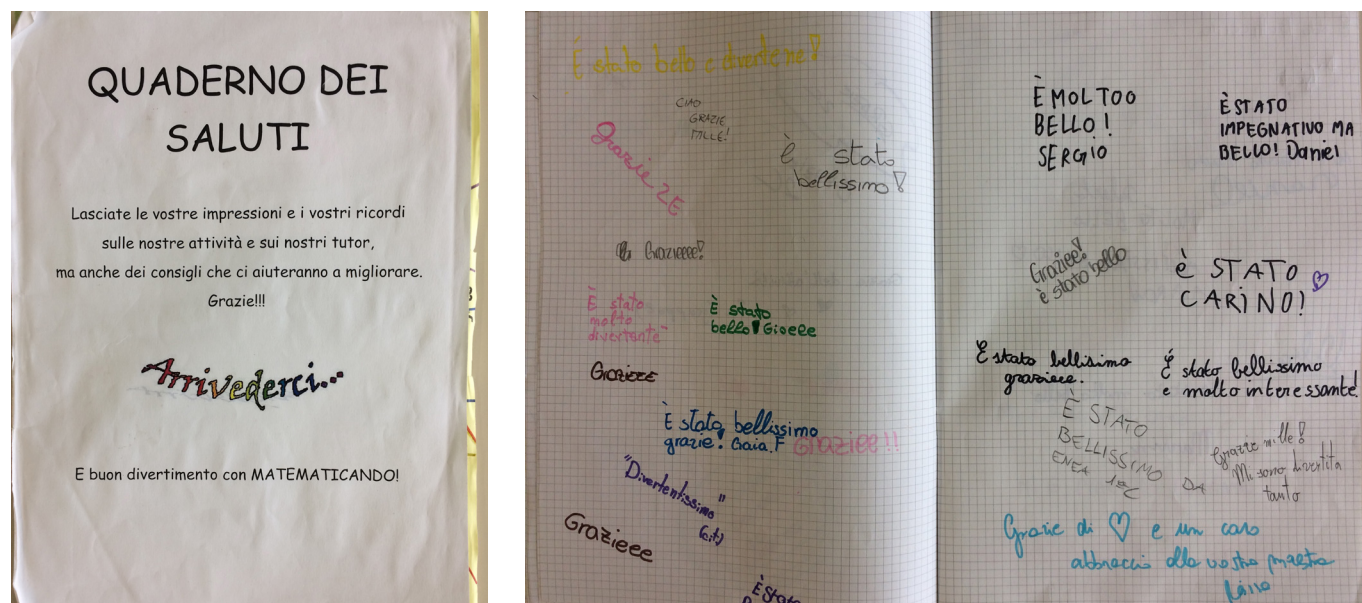 QUADERNO DEI
SALUTI
Lasciate le vostre impressioni e i vostri ricordi
sulle nostre attività e sui nostri tutor,
ma anche dei consigli che ci aiuteranno a migliorare.
Grazie!!!
Arrivederci...
E buon divertimento con MATEMATICANDO!
È stato bello e divertente!
CIAO
GRAZIE
MILLE!
Grazie 2E
è stato
bellissimo!
Grazieeee!
È stato
molto
divertente
È stato
bello! Gioele
GRAZIEEE
È stato bellissimo
grazie! Gaia.F
GRAZIEE!!
"Divertentissimo"
(cit)
Grazieee
È stato
È MOLTOO
BELLO!
SERGIO
È STATO
IMPEGNATIVO MA
BELLO! Daniel
Graziee!
è stato bello
è STATO
CARINO!
È stato bellisimo
grazieee.
É stato bellissimo
e molto interessante.
È STATO
BELLISSIMO
ENEA
Grazie mille!
Mi sono divertita
tanto
Grazie di ♡ e un caro
abbraccio dalla vostra maestra